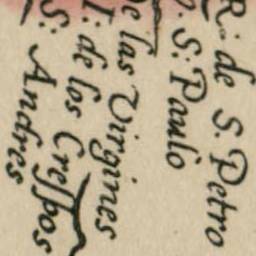 R. de S. Petro
S. Paulo
de las Virgines
I. de los Crespos
S. Andres